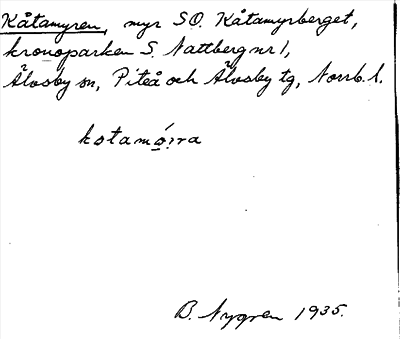 Kåtamyren, myr SO. Kåtamyrberget,
kronoparken S. Nattberg nr 1,
Älvsby sn, Piteå och Älvsby tg, Norrb. l.
kotamó̱:rra
B. Nygren 1935.